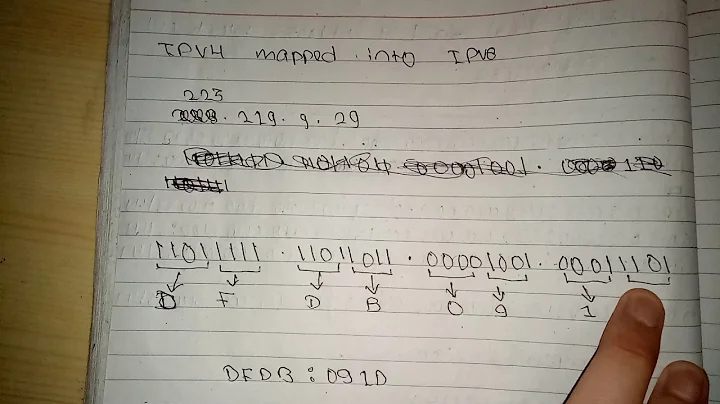 IPV4 mapped into IPV6
223
. 219. 9. 29
11011111 . 11011011 . 00001001. 00011101
D F D B 0 9 1
DFDB : 091D